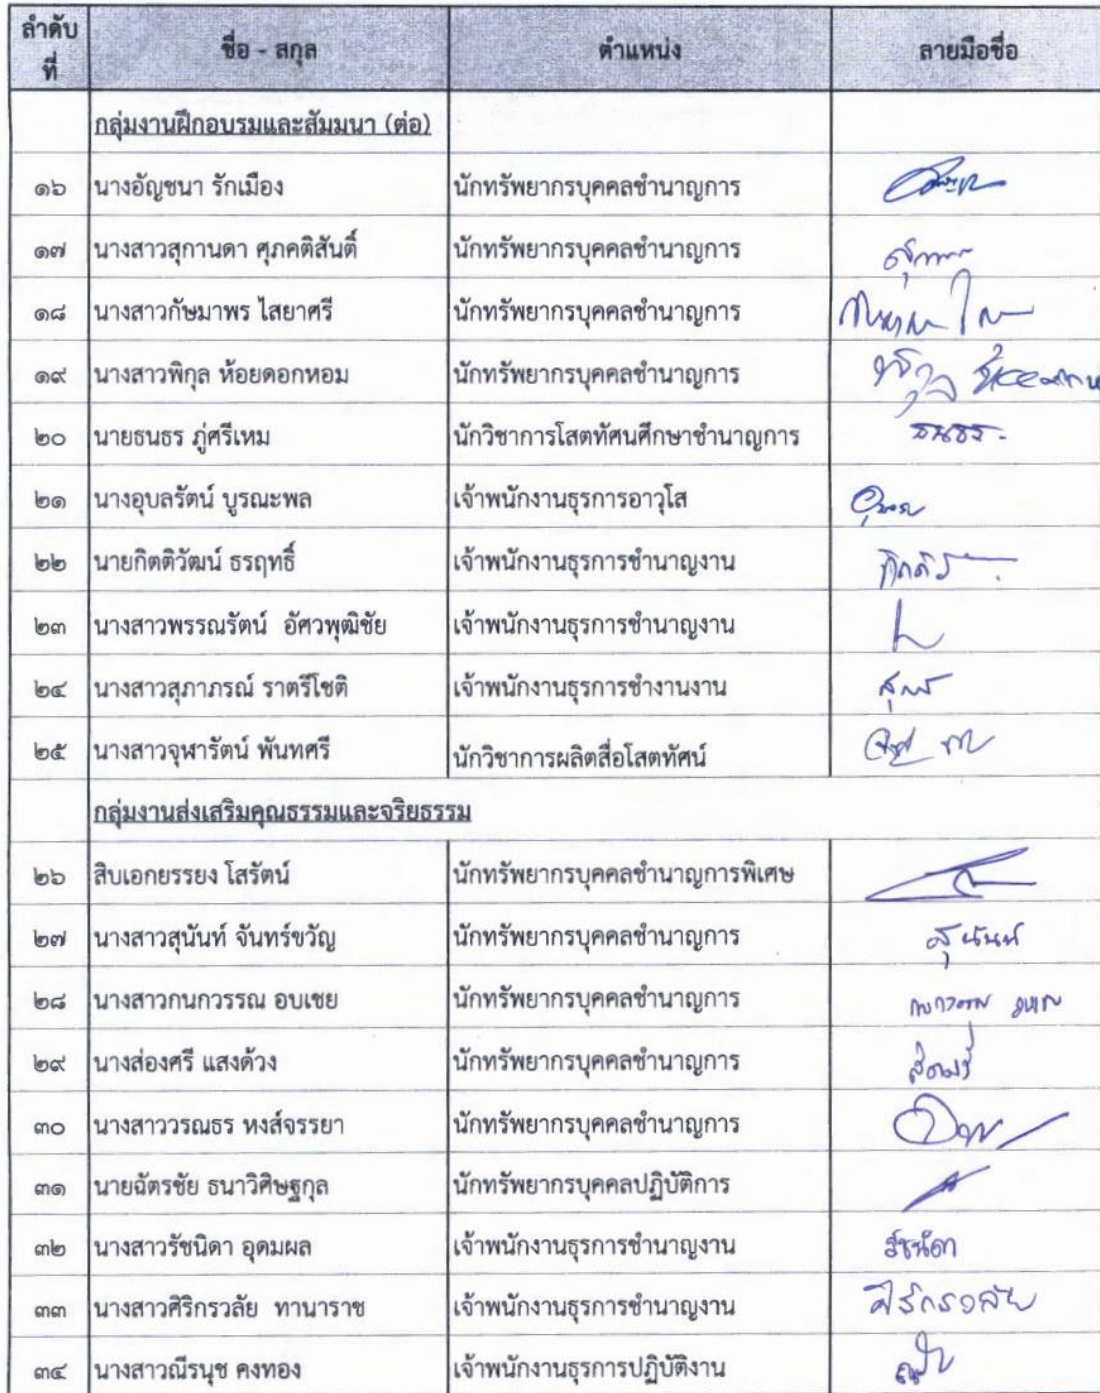 ลำดับที่ ชื่อ - สกุล ตำแหน่ง ลายมือชื่อ
กลุ่มงานฝึกอบรมและสัมมนา (ต่อ)
๑๖ นางอัญชนา รักเมือง นักทรัพยากรบุคคลชำนาญการ
๑๗ นางสาวสุกานดา ศุภคติสันติ์ นักทรัพยากรบุคคลชำนาญการ
๑๘ นางสาวกัษมาพร ไสยาศรี นักทรัพยากรบุคคลชำนาญการ
๑๙ นางสาวพิกุล ห้อยดอกหอม นักทรัพยากรบุคคลชำนาญการ
๒๐ นายธนธร ภู่ศรีเหม นักวิชาการโสตทัศนศึกษาชำนาญการ ธนธร
๒๑ นางอุบลรัตน์ บูรณะพล เจ้าพนักงานธุรการอาวุโส
๒๒ นายกิตติวัฒน์ ธรฤทธิ์ เจ้าพนักงานธุรการชำนาญงาน
๒๓ นางสาวพรรณรัตน์ อัศวพุฒิชัย เจ้าพนักงานธุรการชำนาญงาน
๒๔ นางสาวสุภาภรณ์ ราตรีโชติ เจ้าพนักงานธุรการชำงานงาน
๒๕ นางสาวจุฬารัตน์ พันทศรี นักวิชาการผลิตสื่อโสตทัศน์
กลุ่มงานส่งเสริมคุณธรรมและจริยธรรม
๒๖ สิบเอกยรรยง โสรัตน์ นักทรัพยากรบุคคลชำนาญการพิเศษ
๒๗ นางสาวสุนันท์ จันทร์ขวัญ นักทรัพยากรบุคคลชำนาญการ สุนันท์
๒๘ นางสาวกนกวรรณ อบเชย นักทรัพยากรบุคคลชำนาญการ
๒๙ นางส่องศรี แสงด้วง นักทรัพยากรบุคคลชำนาญการ
๓๐ นางสาววรณธร หงส์จรรยา นักทรัพยากรบุคคลชำนาญการ
๓๑ นายฉัตรชัย ธนาวิศิษฐกุล นักทรัพยากรบุคคลปฏิบัติการ
๓๒ นางสาวรัชนิดา อุดมผล เจ้าพนักงานธุรการชำนาญงาน รัชนิดา
๓๓ นางสาวศิริกรวลัย ทานาราช เจ้าพนักงานธุรการชำนาญงาน ศิริกรวลัย
๓๔ นางสาวณีรนุช คงทอง เจ้าพนักงานธุรการปฏิบัติงาน